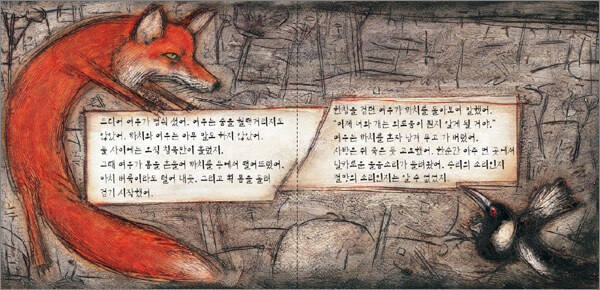 그다음 여우가 멈춰 섰어. 여우는 숨을 헐떡거리지도
않았어. 까치와 여우는 아무 말도 하지 않았어.
둘 사이에는 오직 침묵만이 흘렀지.
그때 여우가 몸을 흔들어 까치를 등에서 떨어뜨렸어.
마치 벼룩이라도 털어 내듯. 그리고 휙 몸을 돌려
걷기 시작했어.
한참을 걷던 여우가 까치를 돌아보며 말했어.
"이제 너와 개는 외로움이 뭔지 알게 될 거야."
여우는 까치를 혼자 남겨 두고 가 버렸어.
사막은 쥐 죽은 듯 고요했어. 한순간 아주 먼 곳에서
날카로운 울음소리가 들려왔어. 승리의 소리인지
절망의 소리인지는 알 수 없었지.